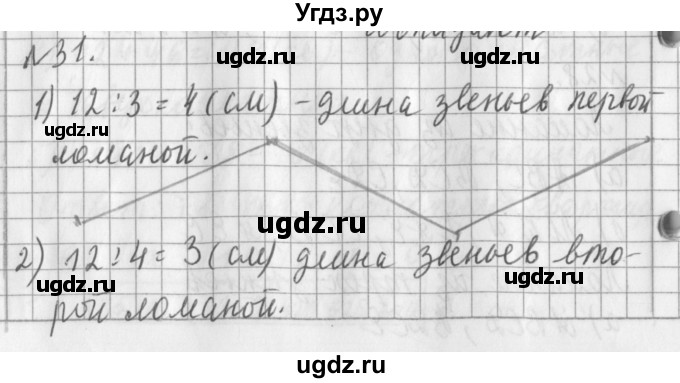 Угдз.ру
№31.
ugdz.ru
1) 12 : 3 = 4 (см) – длина звеньев первой
ugdz.ru
ugdz.ru
ломаной.
ugdz.ru
2) 12 : 4 = 3 (см) длина звеньев вто-
ugdz.ru
ugdz.ru
рой ломаной.
ugdz.ru